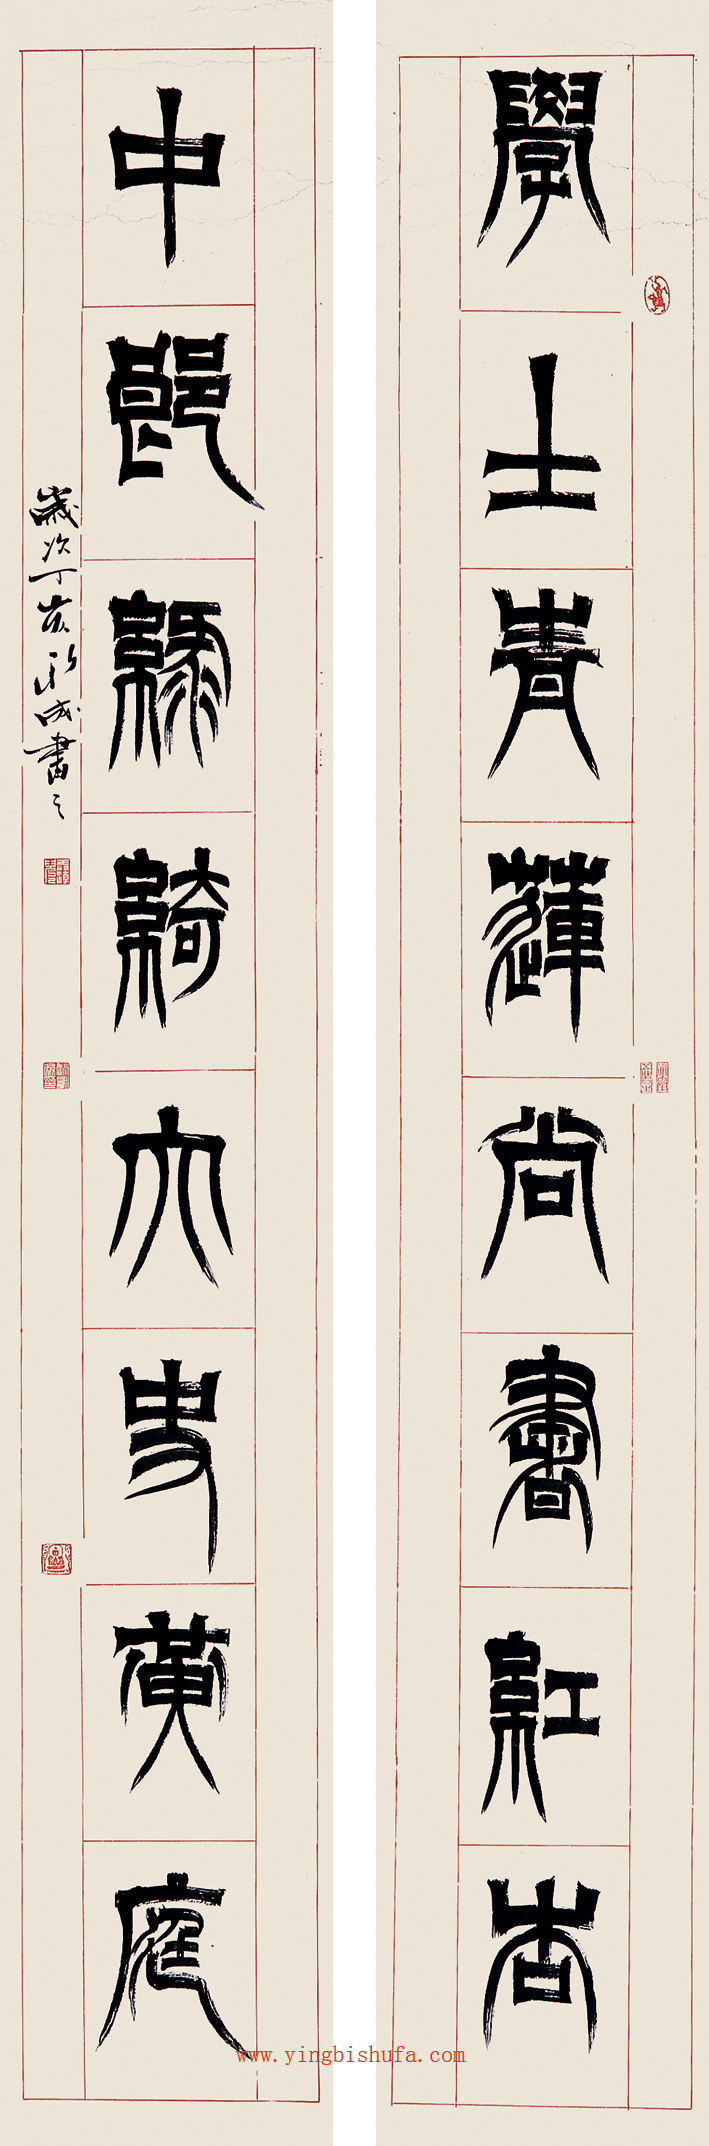 學士青蓮尚書紅杏
中郎綠綺大史黃庭
歲次丁亥成書之
www.yingbishufa.com